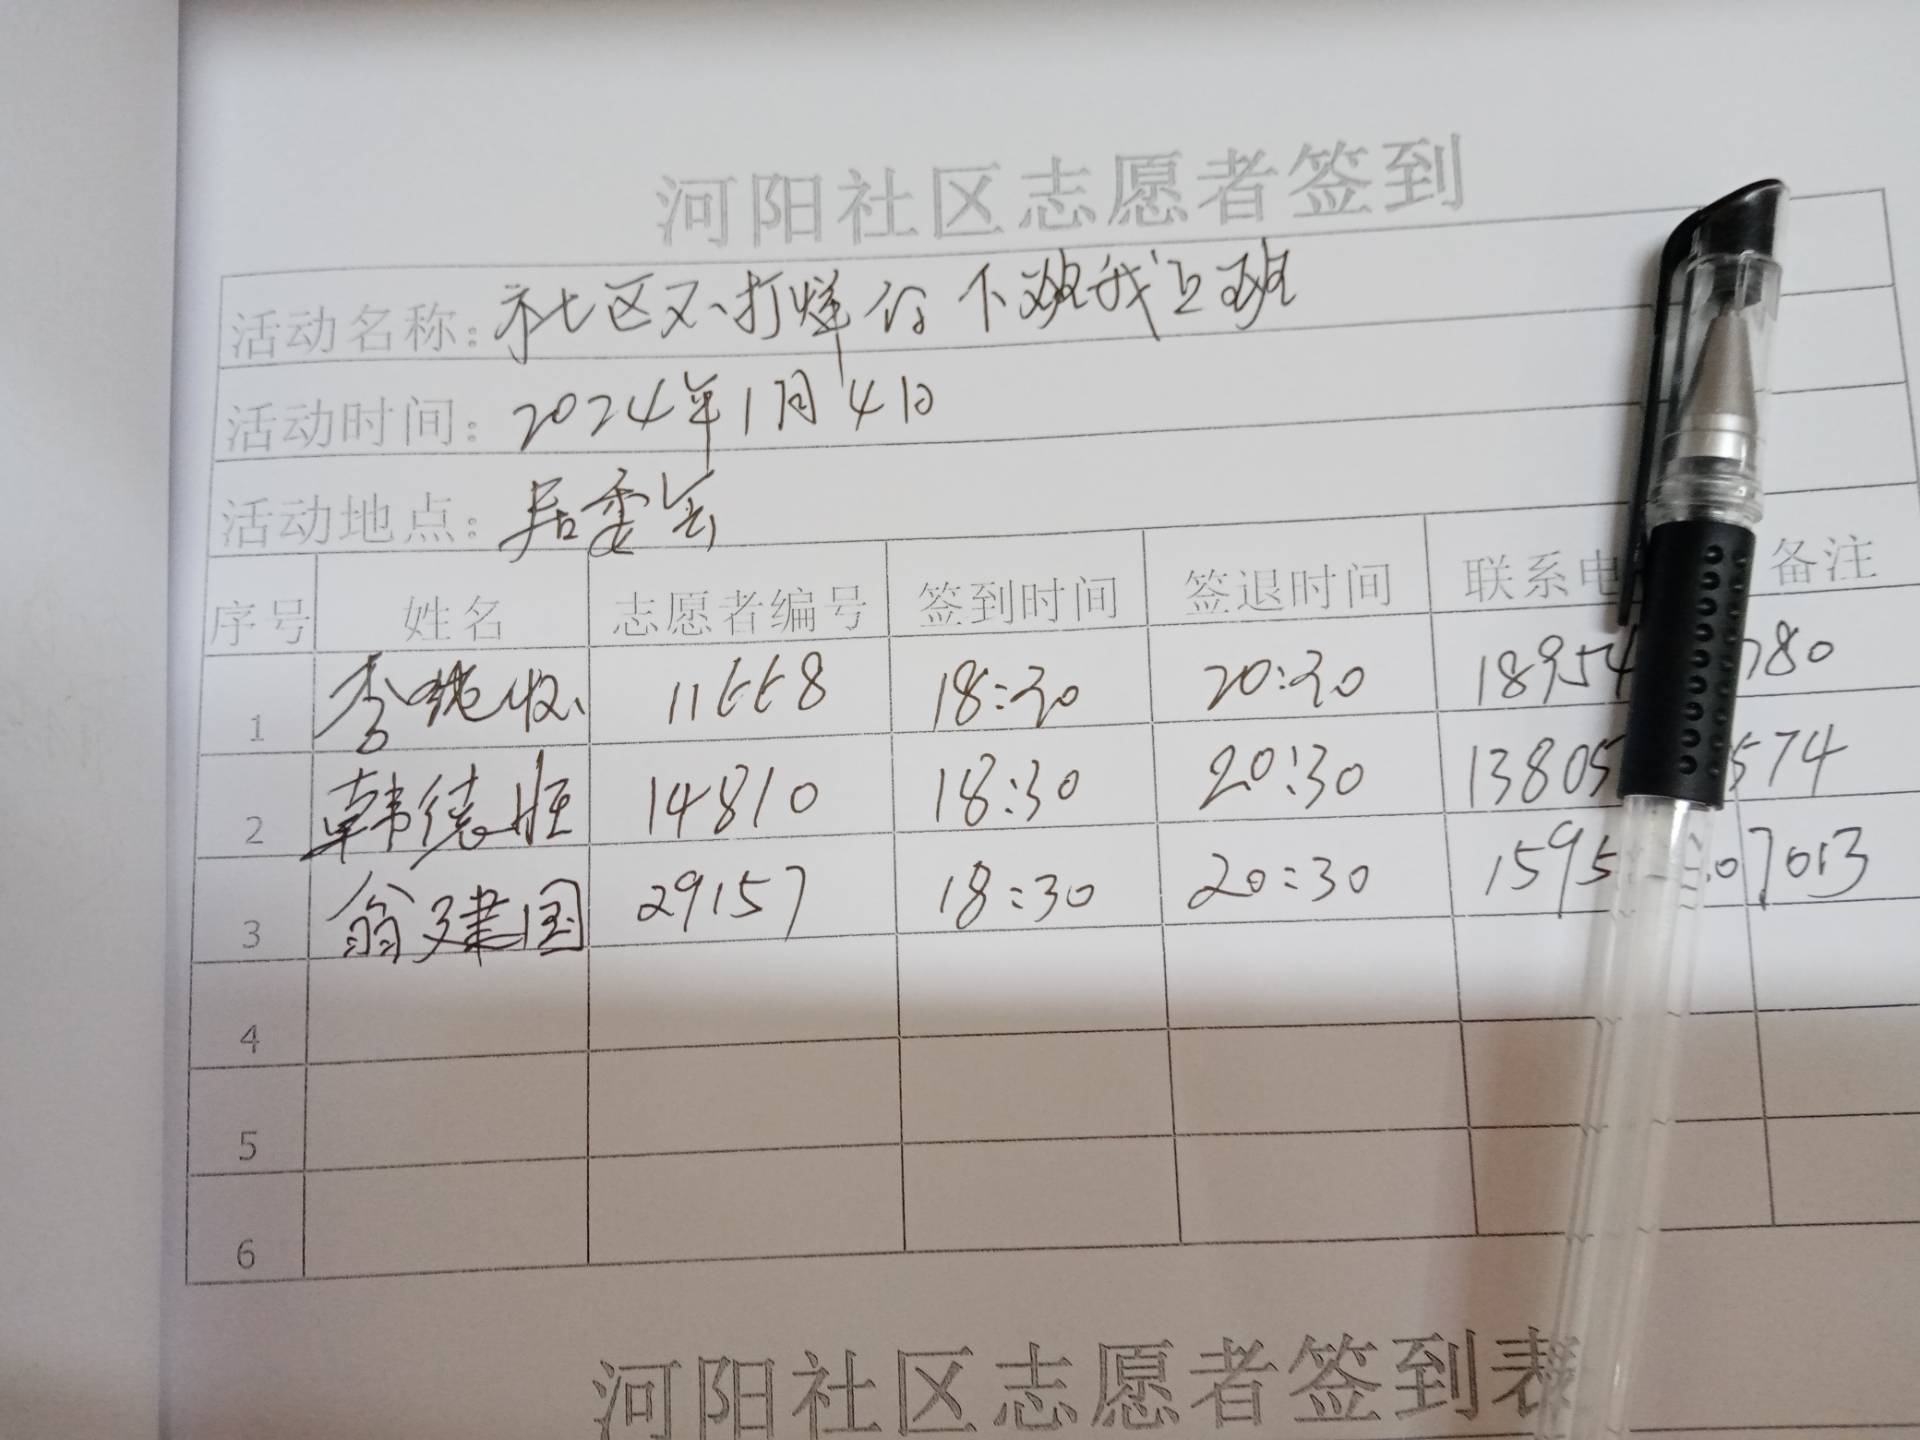 河阳社区志愿者签到
活动名称: 社区不打烊 你下班我上班
活动时间: 2024年1月4日
活动地点: 居委会
序号 姓名 志愿者编号 签到时间 签退时间 联系电 备注
1 李 11668 18:30 20:30 18954 780
2 韩德胜 14810 18:30 20:30 13805 574
3 翁建国 29157 18:30 20:30 1595 07013
4
5
6
河阳社区志愿者签到表